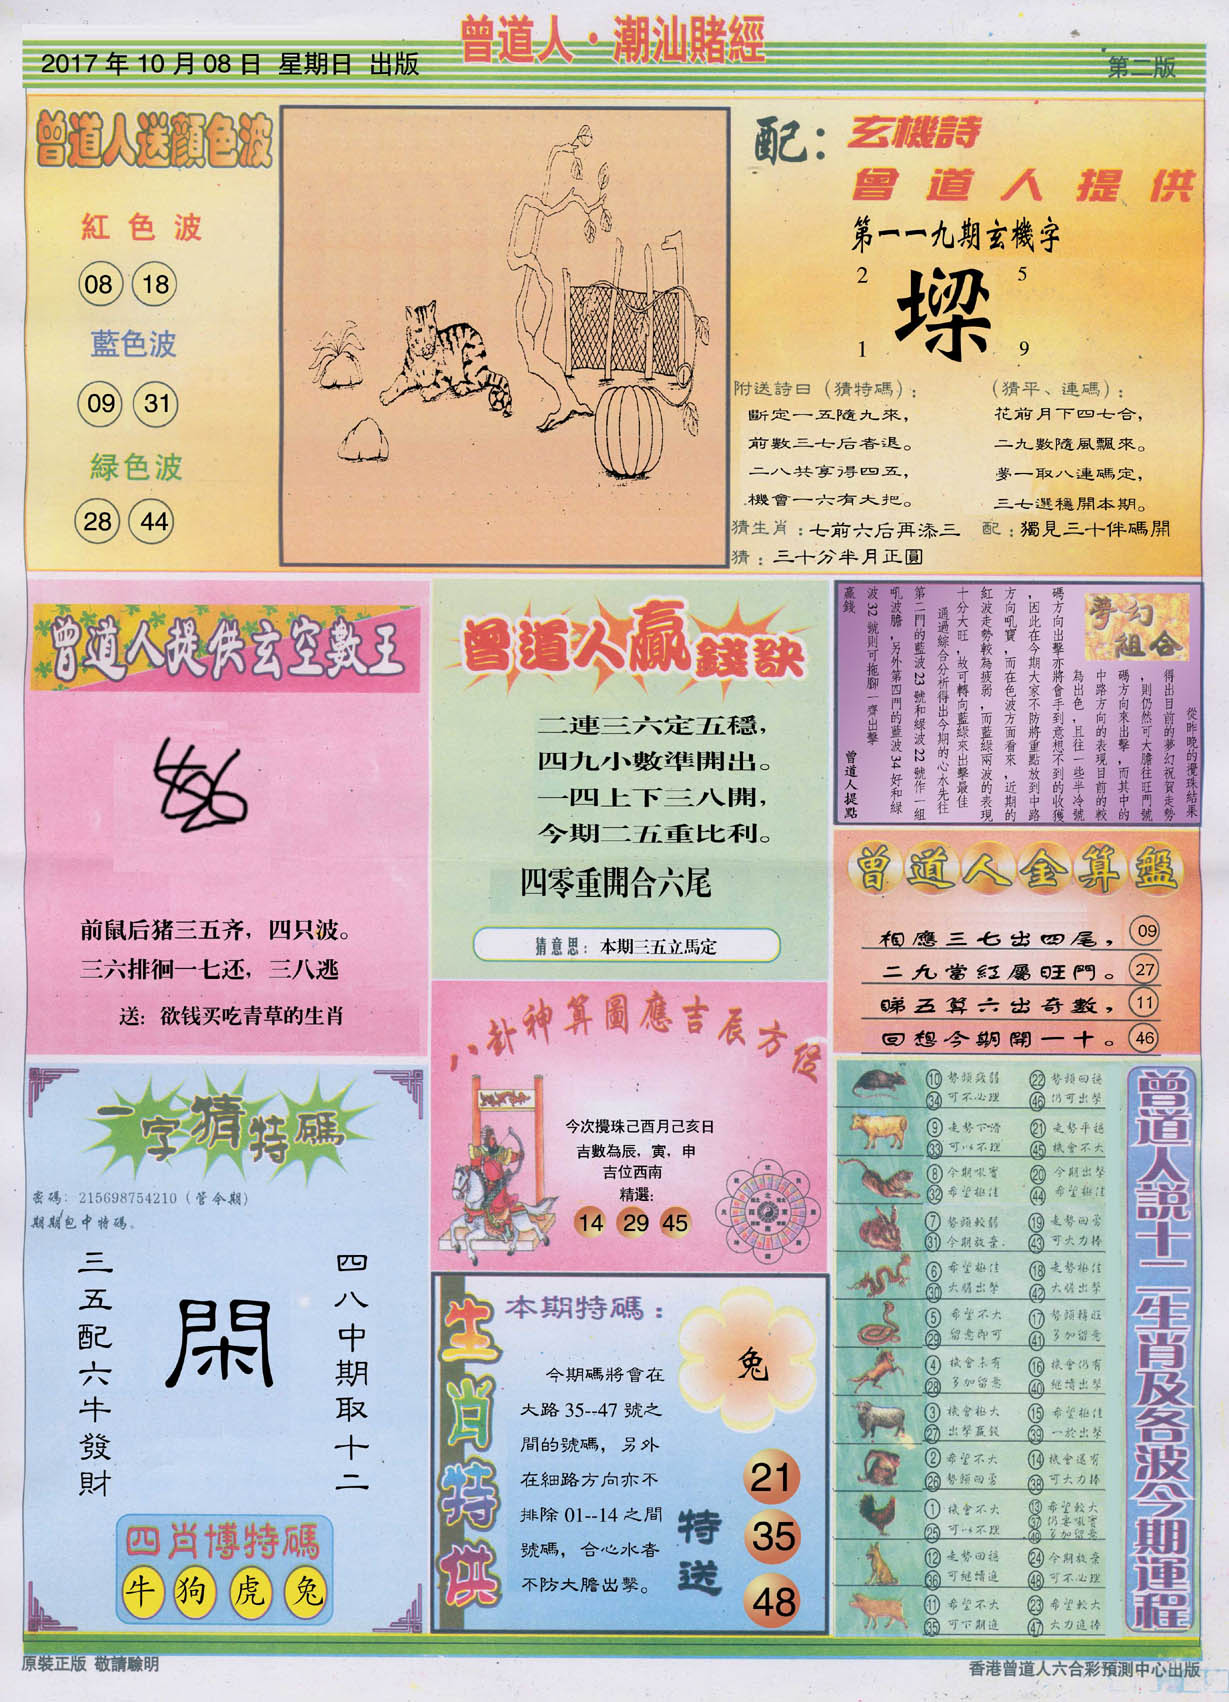 曾道人·潮汕賭經
2017年10月08日 星期日 出版
第二版
曾道人送顔色波
紅色波
08 18
藍色波
09 31
緑色波
28 44
配：玄機詩
曾道人提供
第一一九期玄機字
2 5
墚
1 9
附送詩曰（猜特碼）：
斷定一五隨九來，
前數三七后者退。
二八共享得四五，
機會一六有大把。
（猜平、連碼）：
花前月下四七合，
二九數隨風飄來。
夢一取八連碼定，
三七選穩開本期。
猜生肖：七前六后再添三
配：獨見三十伴碼開
猜：三十分半月正圓
曾道人提供玄空數王
前鼠后猪三五齐，四只波。
三六排徊一七还，三八逃
送：欲钱买吃青草的生肖
曾道人贏錢訣
二連三六定五穩，
四九小數準開出。
一四上下三八開，
今期二五重比利。
四零重開合六尾
猜意思：本期三五立馬定
夢幻組合
從昨晚的攪珠結果
得出目前的夢幻祝賀走勢
，則仍然可大膽往旺門號
碼方向來出擊，而其中的
中路方向的表現目前的較
為出色，且往一些半冷號
碼方向出擊亦將會手到意想不到的收獲
，因此在今期大家不防將重點放到中路
方向吼寶，而在色波方面看來，近期的
紅波走勢較為疲弱，而藍緑兩波的表現
十分大旺，故可轉向藍緑來出擊最佳
通過綜合分析得出今期的心水先往
第二門的藍波23號和緑波22號作一組
吼波膽，另外第四門的藍波34好和緑
波32號則可拖腳一齊出擊
贏錢
曾道人提點
曾道人金算盤
相應三七出四尾， 09
二九當紅屬旺門。 27
睇五算六出奇數， 11
回想今期開一十。 46
八卦神算圖應吉辰方位
今次攪珠己酉月己亥日
吉數為辰，寅，申
吉位西南
精選：
14 29 45
一字猜特碼
密碼：215698754210（管今期）
期期包中特碼。
四八中期取十二
閑
三五配六牛發財
四肖博特碼
牛 狗 虎 兔
生肖特供
本期特碼：
兔
今期碼將會在
大路35--47號之
間的號碼，另外
在細路方向亦不
排除01--14之間
號碼，合心水者
不防大膽出擊。
特送
21
35
48
曾道人説十二生肖及各波今期運程
10 勢頭疲弱 22 勢頭回穩
34 可不必理 46 仍可出擊
9 走勢下滑 21 走勢平穩
33 可以不理 45 機會不大
8 今期吼寶 20 今期出擊
32 希望極佳 44 希望極佳
7 勢頭較弱 19 走勢回勇
31 今期放棄. 43 可大力捧
6 希望極佳 18 走勢極佳
30 大膽出擊 42 大膽出擊
5 希望不大 17 勢頭轉旺
29 留意即可 41 多加留意
4 機會未有 16 機會仍有
28 多加留意 40 繼續出擊
3 機會極大 15 希望極佳
27 出擊贏錢 39 一於出擊
2 希望不大 14 機會還有
26 勢頭回勇 38 可大力捧
1 機會不大 13 希望較大
37 仍要吼實
25 可以不理 49 多加留意
12 走勢回穩 24 今期放棄
36 可繼續追 48 可不必理
11 希望不大 23 希望較大
35 可下期追 47 大力追捧
原裝正版 敬請驗明
香港曾道人六合彩預測中心出版